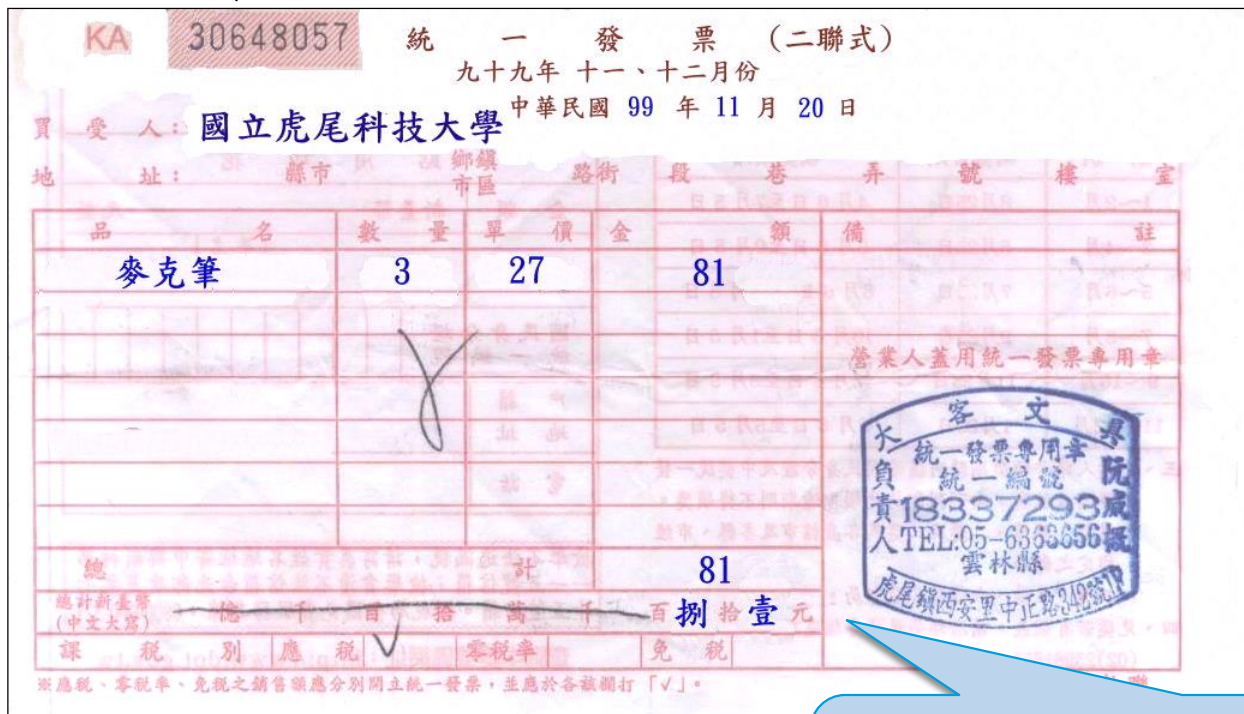 KA 30648057 統一發票(二聯式)
九十九年 十一、十二月份
中華民國 99 年 11 月 20 日
買受人: 國立虎尾科技大學
地址: 縣市 鄉鎮市區 路街 段 巷 弄 號 樓 室
品名 數量 單價 金額 備註
麥克筆 3 27 81
營業人蓋用統一發票專用章
大客文具
統一發票專用章
統一編號
18337293
負責人 阮威
TEL:05-6363656
雲林縣
虎尾鎮西安里中正路342號1F
總計 81
總計新臺幣(中文大寫) 億 千 百 拾 萬 千 百 捌 拾 壹 元
課稅別 應稅 V 零稅率 免稅
※應稅、零稅率、免稅之銷售額應分別開立統一發票,並應於各該欄打「V」。